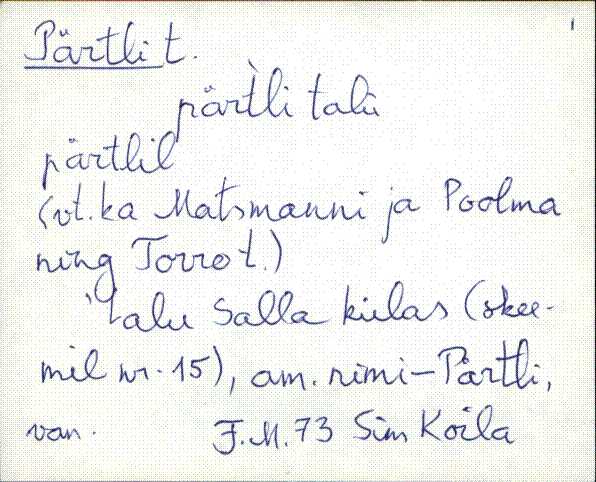 Pärtli t.
pär̀tli talù
pärtlil
(vt. ka Matsmanni ja Poolma
ning Torro t.)
talu Salla külas (skee-
mil nr. 15), am. nimi - Pärtli,
van. F. M. 73 Sim Koila